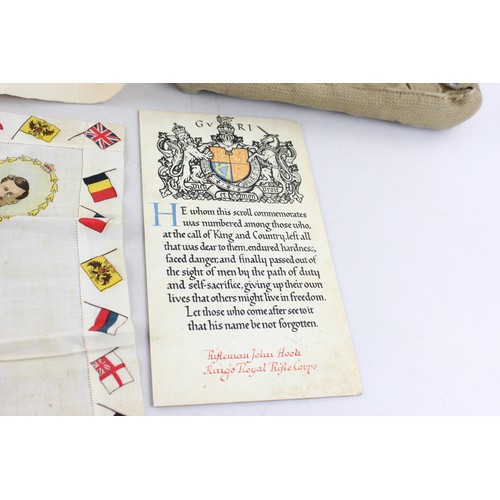 GVRI
HE whom this scroll commemorates
was numbered among those who,
at the call of King and Country, left all
that was dear to them, endured hardness,
faced danger, and finally passed out of
the sight of men by the path of duty
and self-sacrifice, giving up their own
lives that others might live in freedom.
Let those who come after see to it
that his name be not forgotten.
Rifleman John
King's Royal Rifle Corps